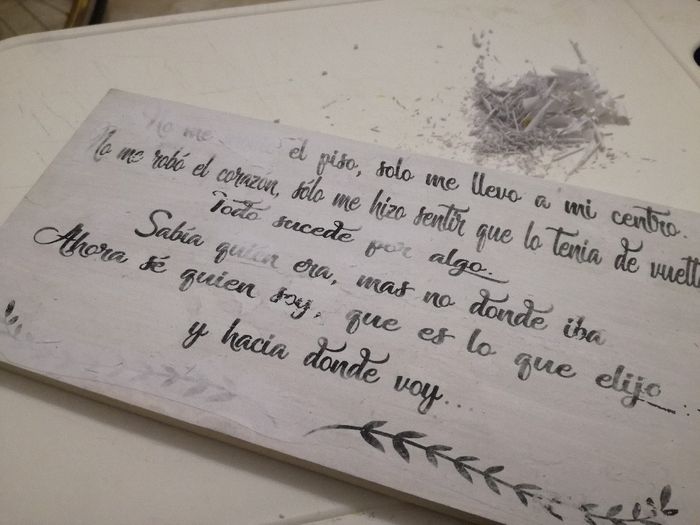 No me el piso, solo me llevo a mi centro.
No me robó el corazón, sólo me hizo sentir que lo tenia de vuelta
Todo sucede por algo.
Sabía quién era, mas no donde iba
Ahora sé quien soy, que es lo que elijo
y hacia donde voy...